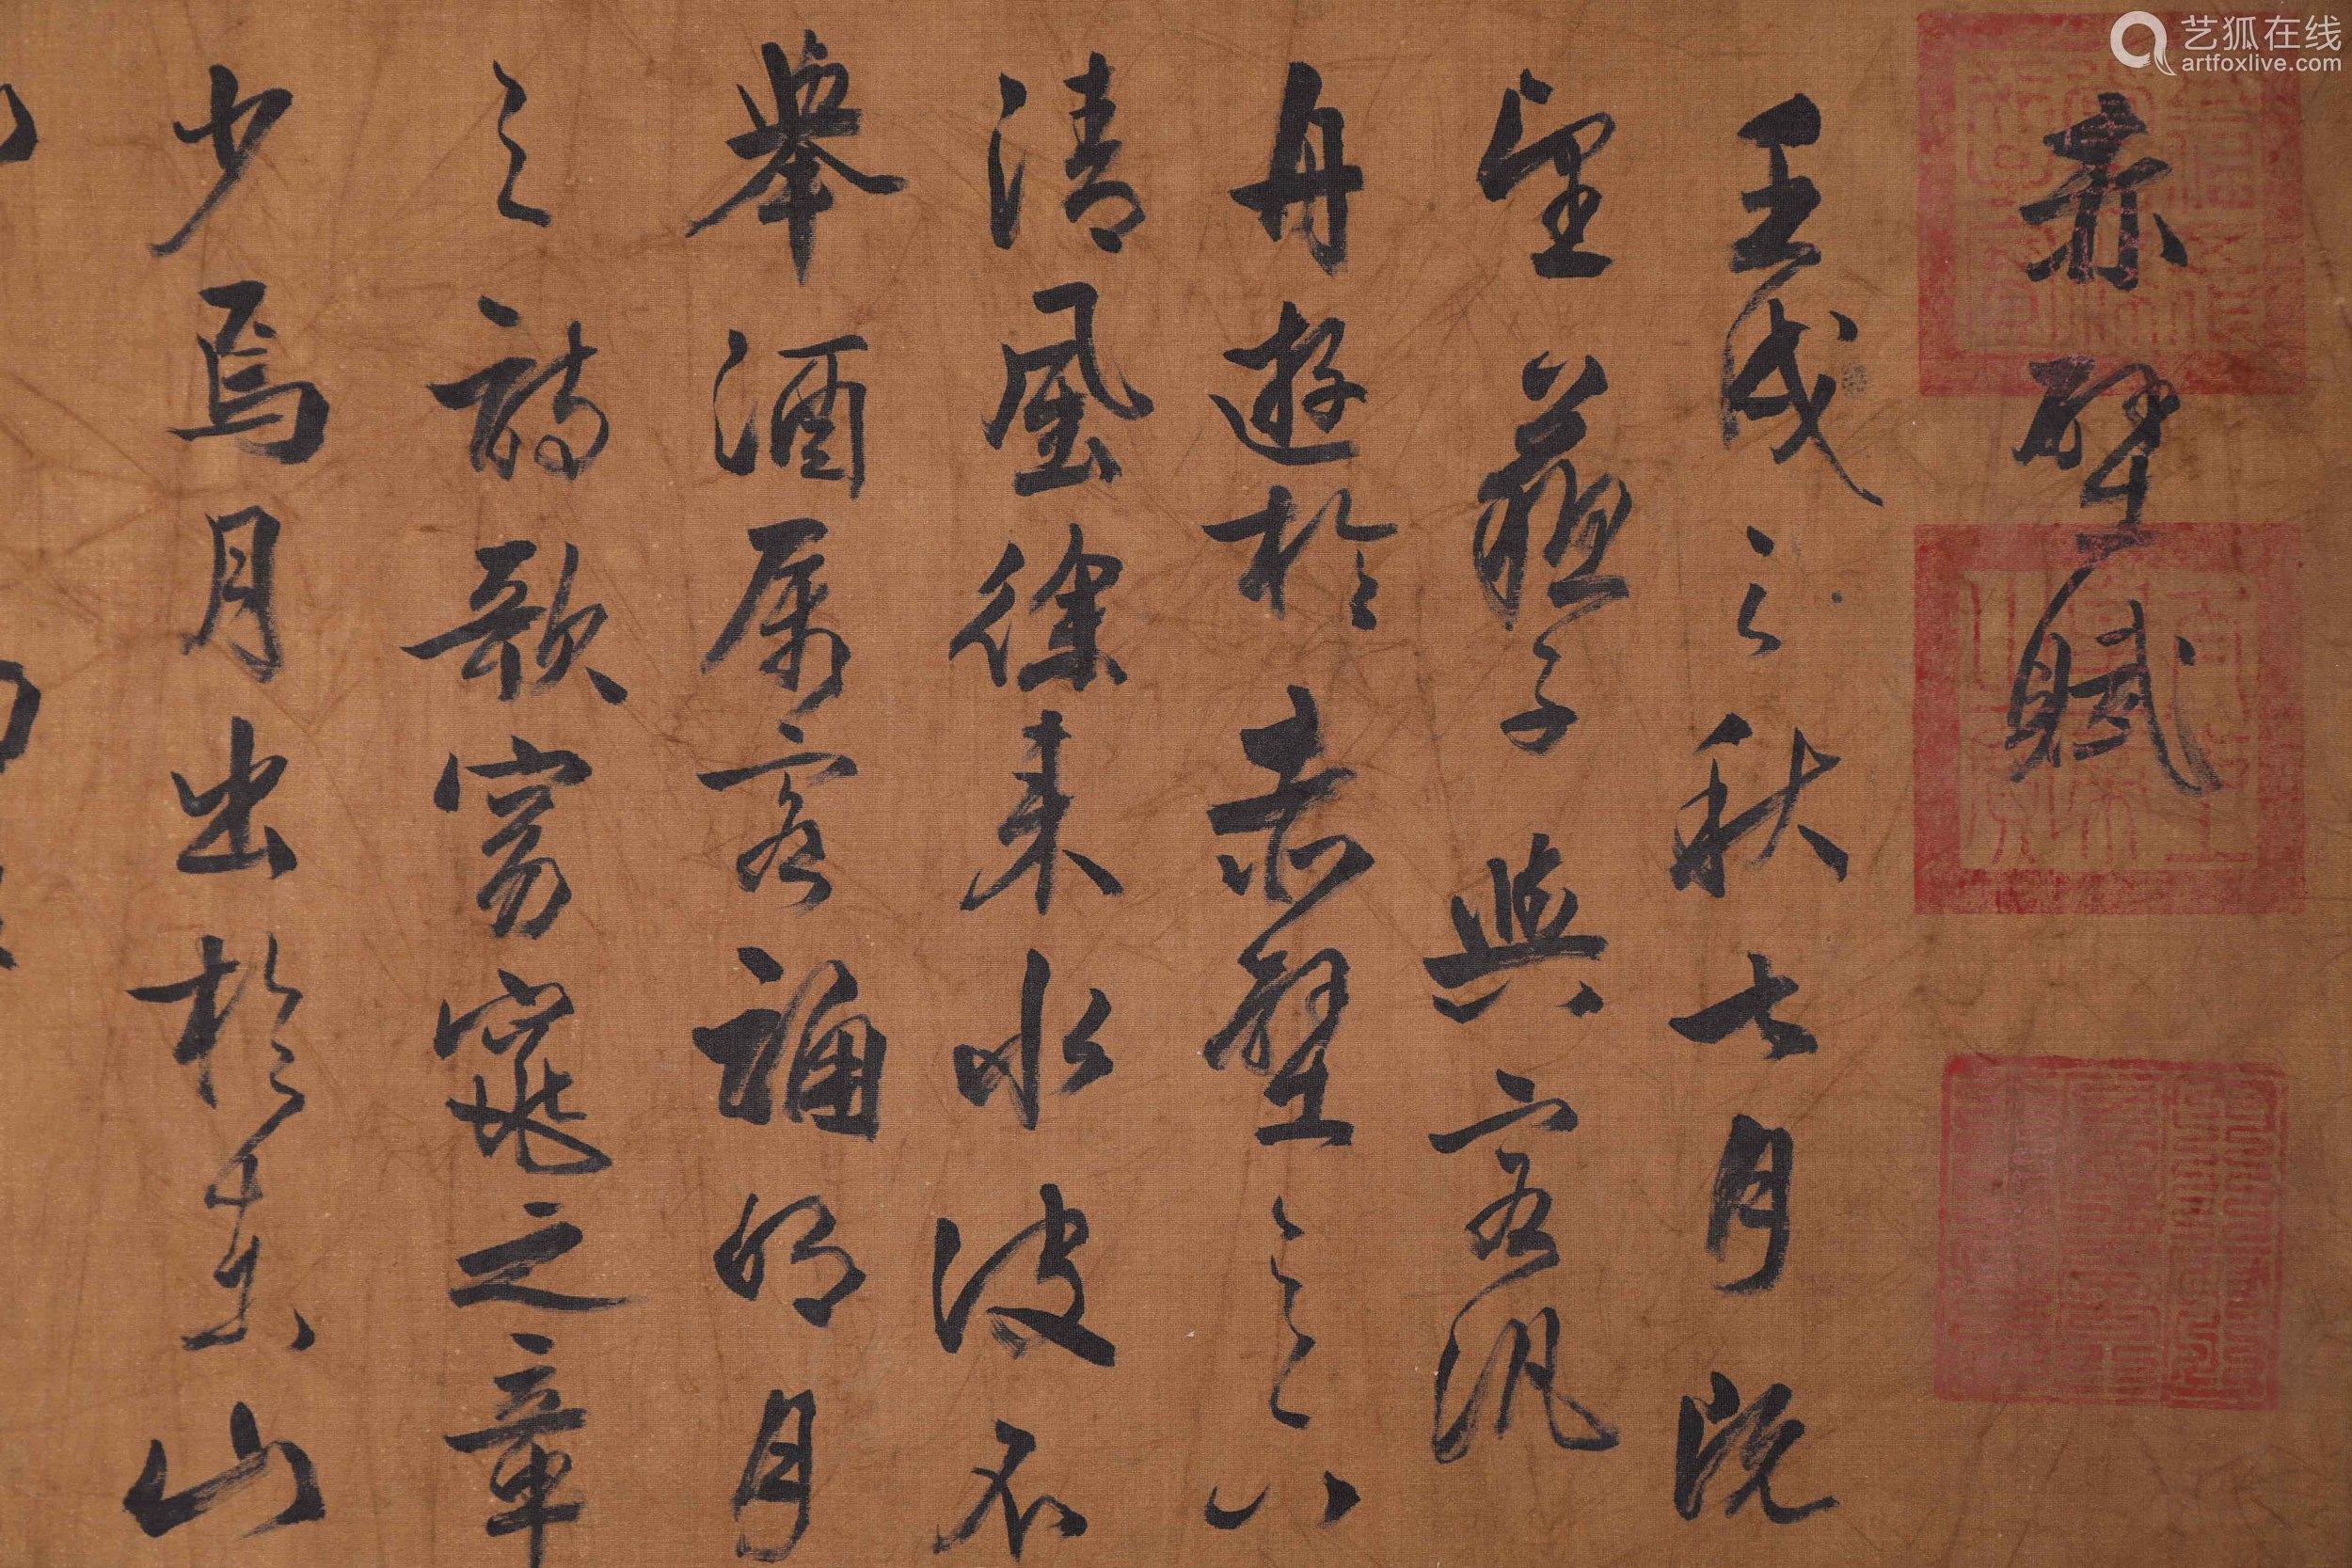 赤壁賦
壬戌之秋七月既
望蘇子與客汎
舟遊於赤壁之下
清風徐來水波不
舉酒属客誦明月
之詩歌窈窕之章
少焉月出於東山
艺狐在线
artfoxlive.com